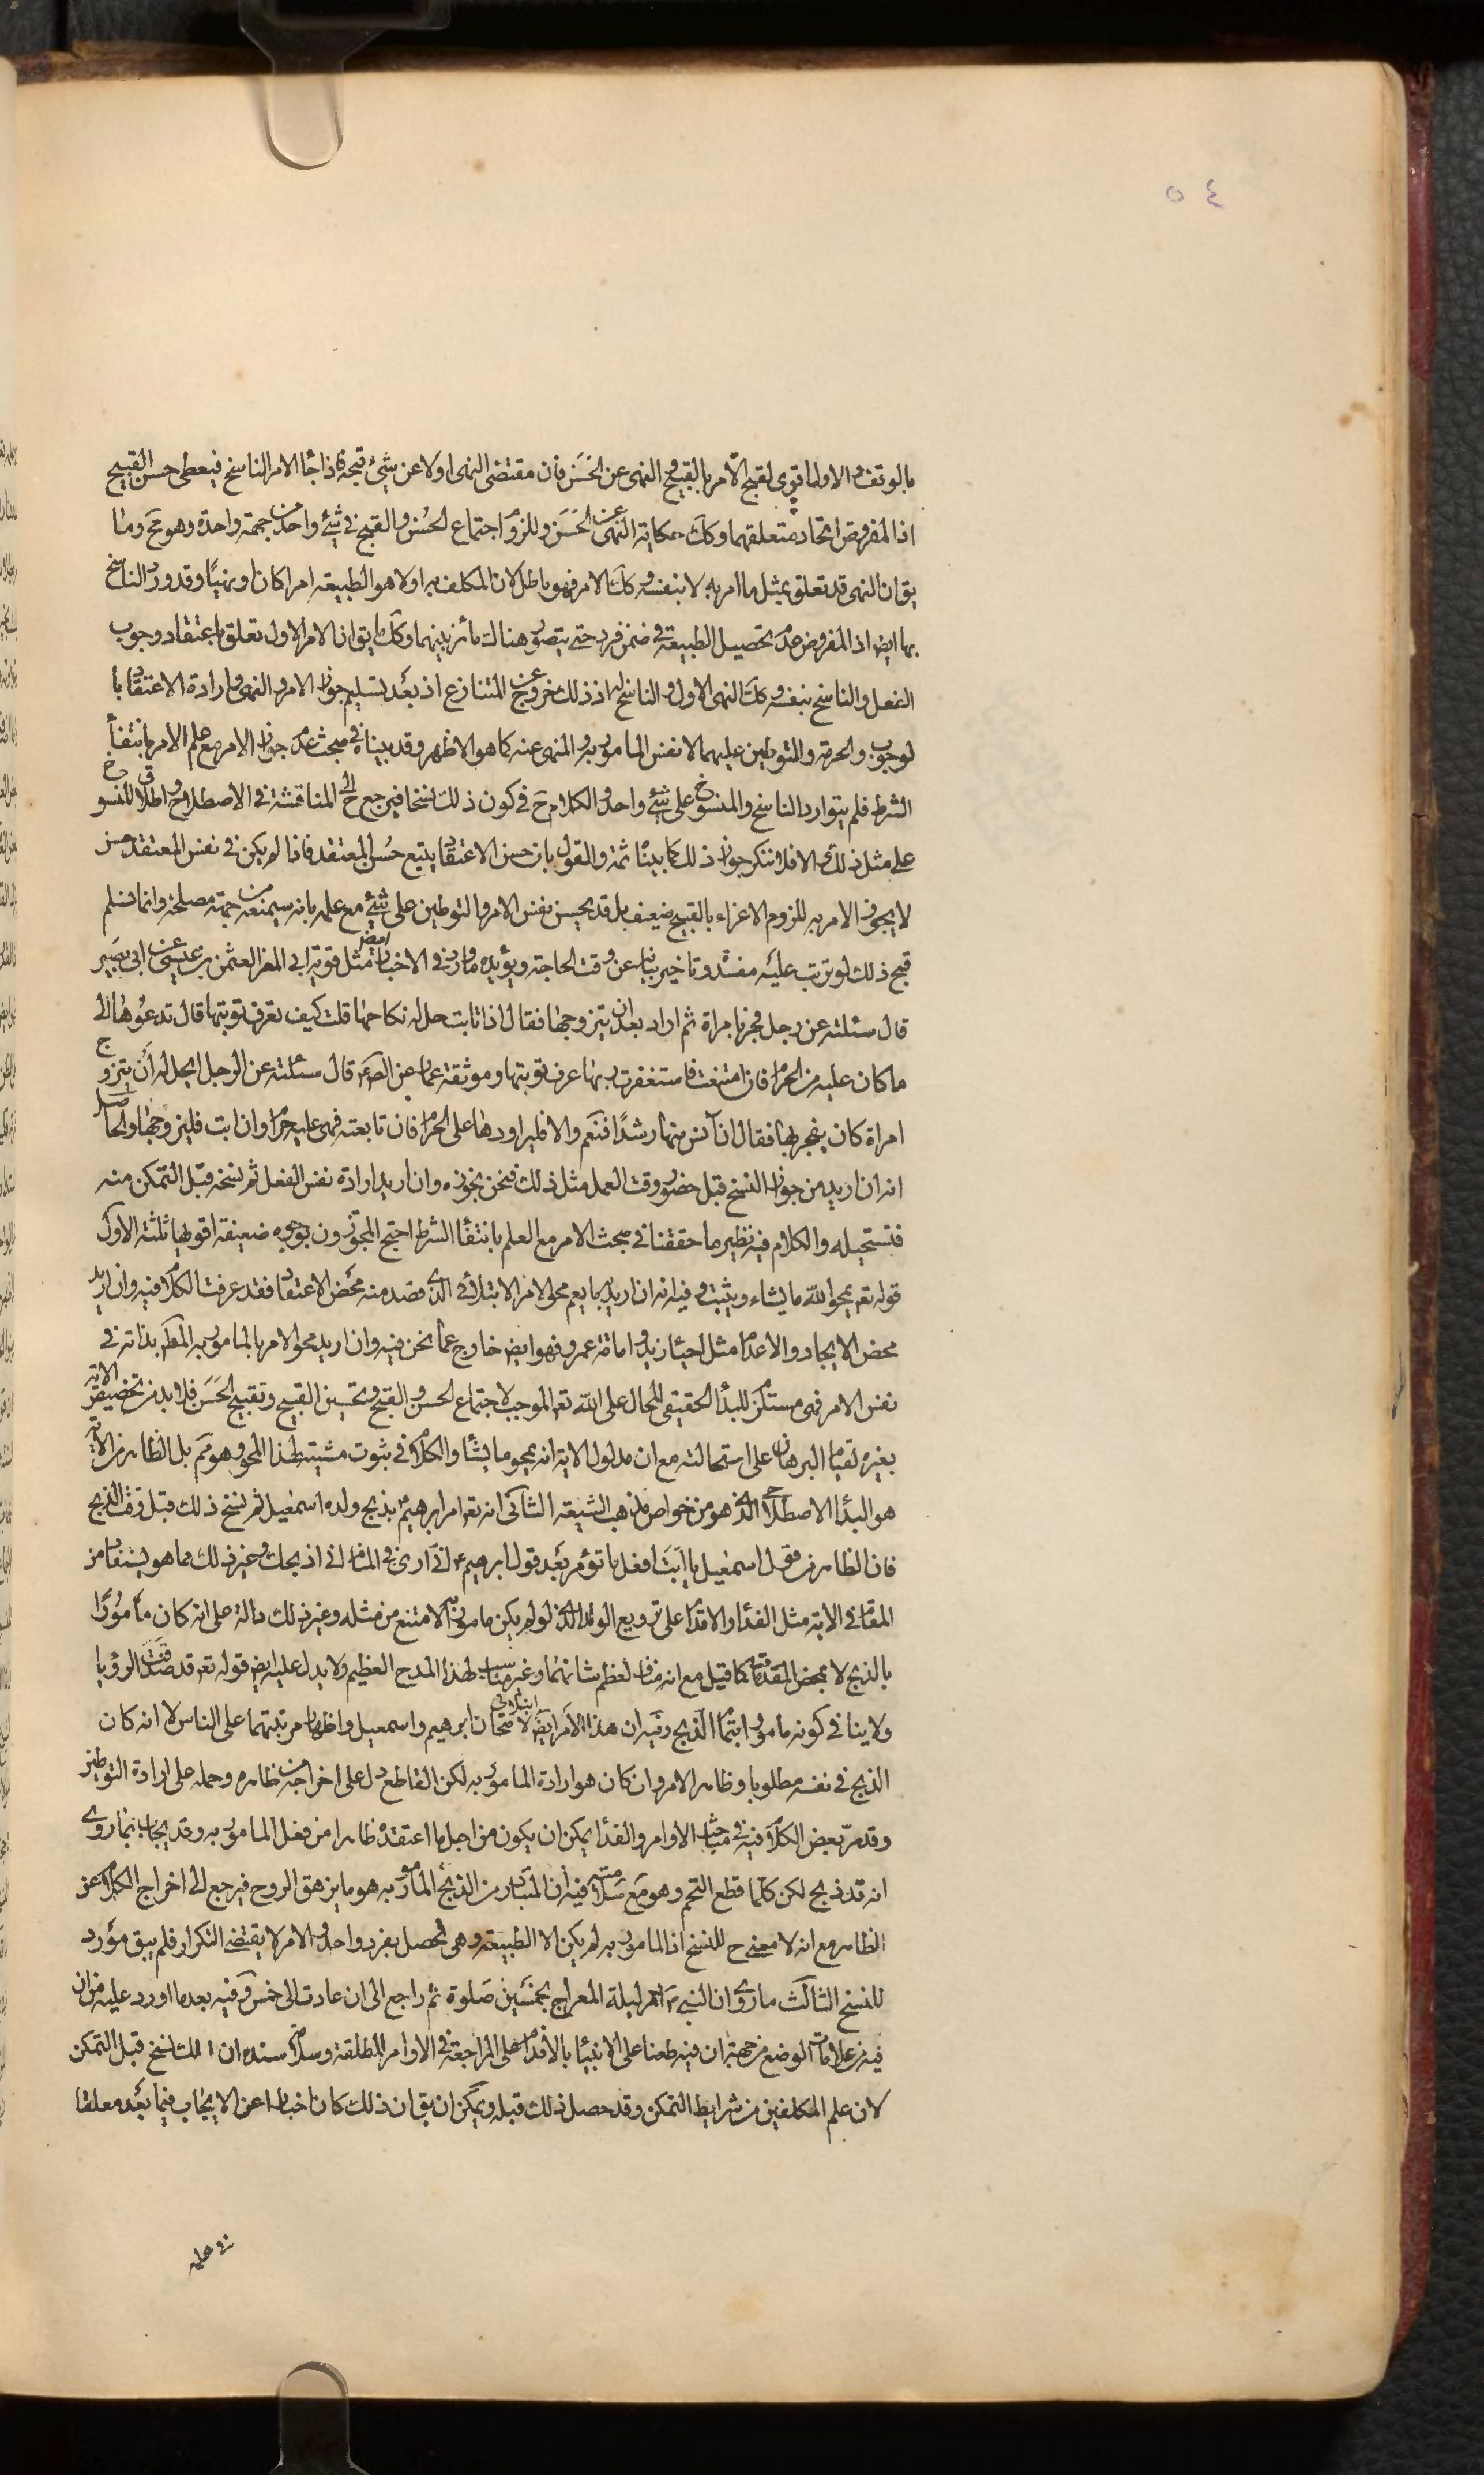 ٥٤
بالوقف والاول اقوى لقبح الامر بالقبيح والنهى عن الحَسَن فان مقتضى النهى اولا عن شىء قبحه فاذا جاء الامر الناسخ فيعطى حسن القبيح
اذ المفروض اتحاد متعلقهما وكك حكاية النهى عن الحَسَن وللزوم اجتماع الحُسْن والقبح فى شئ واحد من جهة واحدة وهو مح وما
يق ان النهى قد تعلق بمثل ما امر به لا بنفسه وكك الامر فهو باطل لان المكلف به اولا هو الطبيعة امرا كان او نهيًا وقد ورد الناسخ
بها ايض اذ المفروض عدم تحصيل الطبيعة فى ضمن فرد حتى يتصور هناك مائز بينهما وكك ما يق ان الامر الاول تعلق باعتقاد وجوب
الفعل والناسخ بنفسه وكك النهى الاول والناسخ له اذ ذلك خروج عن المتنازع اذ بعد تسليم جواز الامر والنهى وارادة الاعتقاد با
لوجوب والحرمة والتوطين عليهما لا نفس المامور به والمنهى عنه كما هو الاظهر وقد بيناه فى مبحث عدم جواز الامر مع علم الامر بانتفاء
الشرط فلم يتوارد الناسخ والمنسوخ على شئ واحد والكلام ح فى كون ذلك نسخا فيرجع ح الى المناقشة فى الاصطلاح واطلاق المنسوخ
على مثل ذلك والا فلا ننكر جواز ذلك كما بينا ثمة والقول بان حسن الاعتقاد يتبع حُسن المعتقد فاذا لم يكن فى نفس المعتقد حسن
لا يجوز الامر به للزوم الاغراء بالقبيح ضعيف بل قد يحسن نفس الامر والتوطين على شئ مع علمه بانه سيمنعه من جهة مصلحة وانما نسلم
قبح ذلك لو ترتب عليه مفسدة وتاخير بيانه عن وقت الحاجة ويؤيده ما ورد فى الاخبار ايض مثل قوية ابى المغرا العثمن بن عيسى عن ابى بصير
قال سئلته عن رجل فجر بامراة ثم اراد بعد ان يتزوجها فقال اذا تابت حل له نكاحها قلت كيف تعرف توبتها قال تدعوها الى
ما كان عليه من الحرام فان امتنعت فاستغفرت ربها عرف توبتها وموثقة عمار عن الصم قال سئلته عن الرجل ايحل له أن يتزوج
امراة كان يفجر بها فقال ان آنس منها رشدًا فنَعَم والا فليراودها على الحرام فان تابعته فهى عليه حرام وان ابت فليتزوجها والحاصل
انه ان اريد من جواز النسخ قبل حضور وقت العمل مثل ذلك فنحن نجوزه وان اريد ارادة نفس الفعل ثم نسخه قبل التمكن منه
فنستحيله والكلام فيه نظير ما حققنا فى مبحث الامر مع العلم بانتفاء الشرط احتج المجوزون بوجوه ضعيفة اقويها ثلثة الاول
قوله تع يمحو الله ما يشاء ويثبت وفيه انه ان اريد بما يعم محو الامر الابتلائى الذى قصد منه محض الاعتقاد فقد عرفت الكلام فيه وان اريد
محض الايجاد والاعدام مثل احياء زيد واماتة عمرو فهو ايض خارج عما نحن فيه وان اريد محو الامر بالمامور به المط بذاته فى
نفس الامر فهى مستلزم للبدا الحقيقى المحال على الله تع الموجب لاجتماع الحسن والقبح وتحسين القبيح وتقبيح الحَسَن فلا بد من تخصيص الاية
بغيره لقيام البرهان على استحالته مع ان مدلول الاية انه يمحو ما يشاء والكلام فى ثبوت مشيته لهذا المحو وهو مم بل الظاهر من الاية
هو البدا الاصطلاحى الذى هو من خواص مذهب الشيعة الثانى انه تع امر ابرهيم بذبح ولده اسمعيل ثم نسخ ذلك قبل وقت الذبح
فان الظاهر من قول اسمعيل يا ابَتَ افعل ما تؤمر بعد قول ابرهيم انى ارى فى المنام انى اذبحك وغير ذلك مما هو يستفاد من
المقام فى الاية مثل الفداء والاقدام على ترويع الولد الذى لو لم يكن مامورا به لامتنع من مثله وغير ذلك دالة على انه كان مأمورًا
بالذبح لا بمحض المقدمات كما قيل مع انه مناف لعظم شانهما وغير مناسب لهذا المدح العظيم ولا يدل عليه ايض قوله تع قد صَدَّقتَ الرؤيا
ولا ينافى كونه مامورا بتمام الذبح وفيه ان هذا الامر ايض ابتلائى لامتحان ابرهيم واسمعيل واظهار مرتبتهما على الناس لا انه كان
الذبح فى نفسه مطلوبا وظاهر الامر وان كان هو ارادة المامور به لكن القاطع دل على اخراجه من ظاهره وحمله على ارادة التوطين
وقد مر بعض الكلام فيه فى مباحث الاوامر والفداء يمكن ان يكون من اجل ما اعتقده ظاهرا من فعل المامور به وقد يجاب بما روى
انه قد ذبح لكن كلما قطع التحم وهو مع سلامته فيه ان المتبادر من الذبح المامور به هو ما يزهق الروح فيرجع الى اخراج الكلام عن
الظاهر مع انه لا معنى ح للنسخ اذ المامور به لم يكن الا الطبيعة وهى تحصل بفرد واحد والامر لا يقتضى التكرار فلم يبق مورد
للنسخ الثالث ما روى ان النبى ص امر ليلة المعراج بخمسين صلوة ثم راجع الى ان عادت الى خمس وفيه بعد ما اورد عليه من ان
فيه من علامات الوضع من جهة ان فيه طعنا على الانبياء بالاقدام على المراجعة فى الاوامر المطلقة وسلامة سنده ان ذلك نسخ قبل التمكن
لان علم المكلفين من شرايط التمكن وقد حصل ذلك قبله ويمكن ان يق ان ذلك كان اخبارا عن الايجاب فيما بعد معلقا